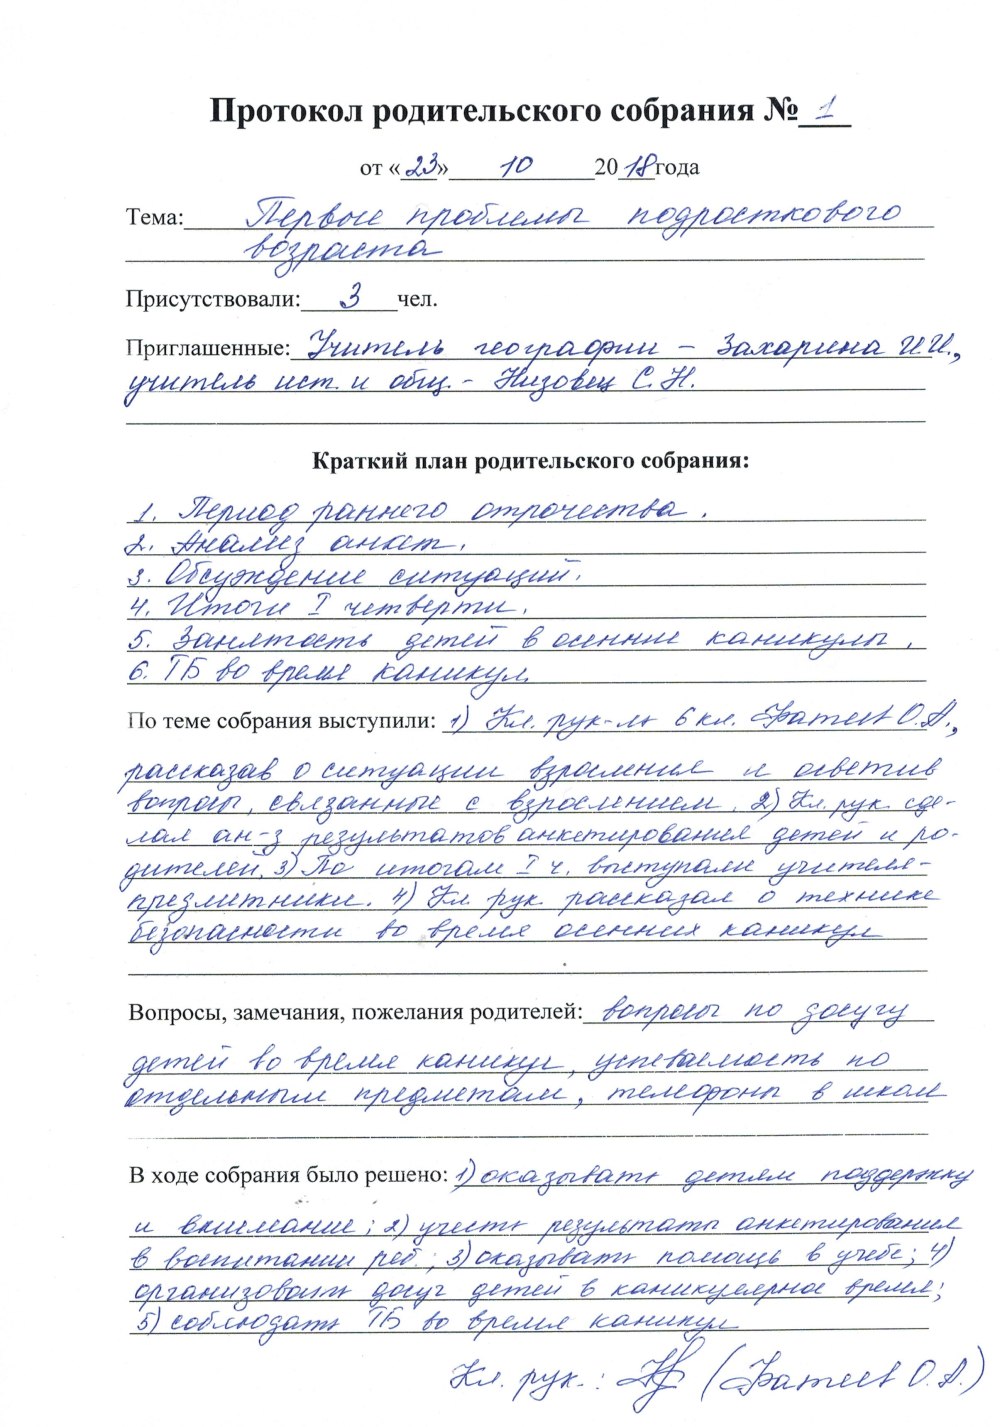 Протокол родительского собрания № 1
от «23» 10 2018 года
Тема: Первые проблемы подросткового
возраста
Присутствовали: 3 чел.
Приглашенные: Учитель географии – Захарина И.И.,
учитель ист. и общ. - Низовец С.Н.
Краткий план родительского собрания:
1. Период раннего отрочества.
2. Анализ анкет.
3. Обсуждение ситуаций.
4. Итоги I четверти.
5. Занятость детей в осенние каникулы.
6. ТБ во время каникул.
По теме собрания выступили: 1) Кл. рук-ль 6 кл. Фатеев О.А.,
рассказав о ситуации взросления и осветив
вопросы, связанные с взрослением. 2) Кл. рук. сде-
лал ан-з результатов анкетирования детей и ро-
дителей. 3) По итогам I ч. выступали учителя-
предметники. 4) Кл. рук. рассказал о технике
безопасности во время осенних каникул
Вопросы, замечания, пожелания родителей: вопросы по досугу
детей во время каникул, успеваемость по
отдельным предметам, телефоны в школе
В ходе собрания было решено: 1) оказывать детям поддержку
и внимание; 2) учесть результаты анкетирования
в воспитании реб.; 3) оказывать помощь в учебе; 4)
организовать досуг детей в каникулярное время;
5) соблюдать ТБ во время каникул
Кл. рук.: (Фатеев О.А.)